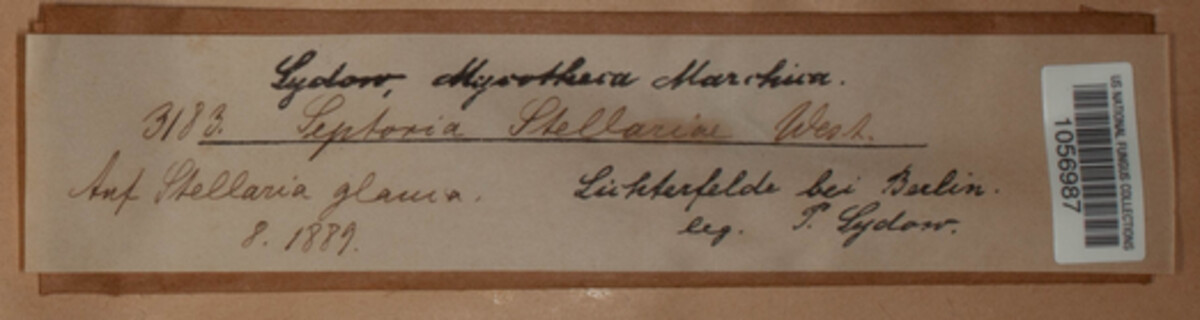 Sydow, Mycotheca Marchica.
3183. Septoria Stellariae West.
Auf Stellaria glauca.
8. 1889.
Lichterfelde bei Berlin.
leg. P. Sydow.
US NATIONAL FUNGUS COLLECTIONS
1056987